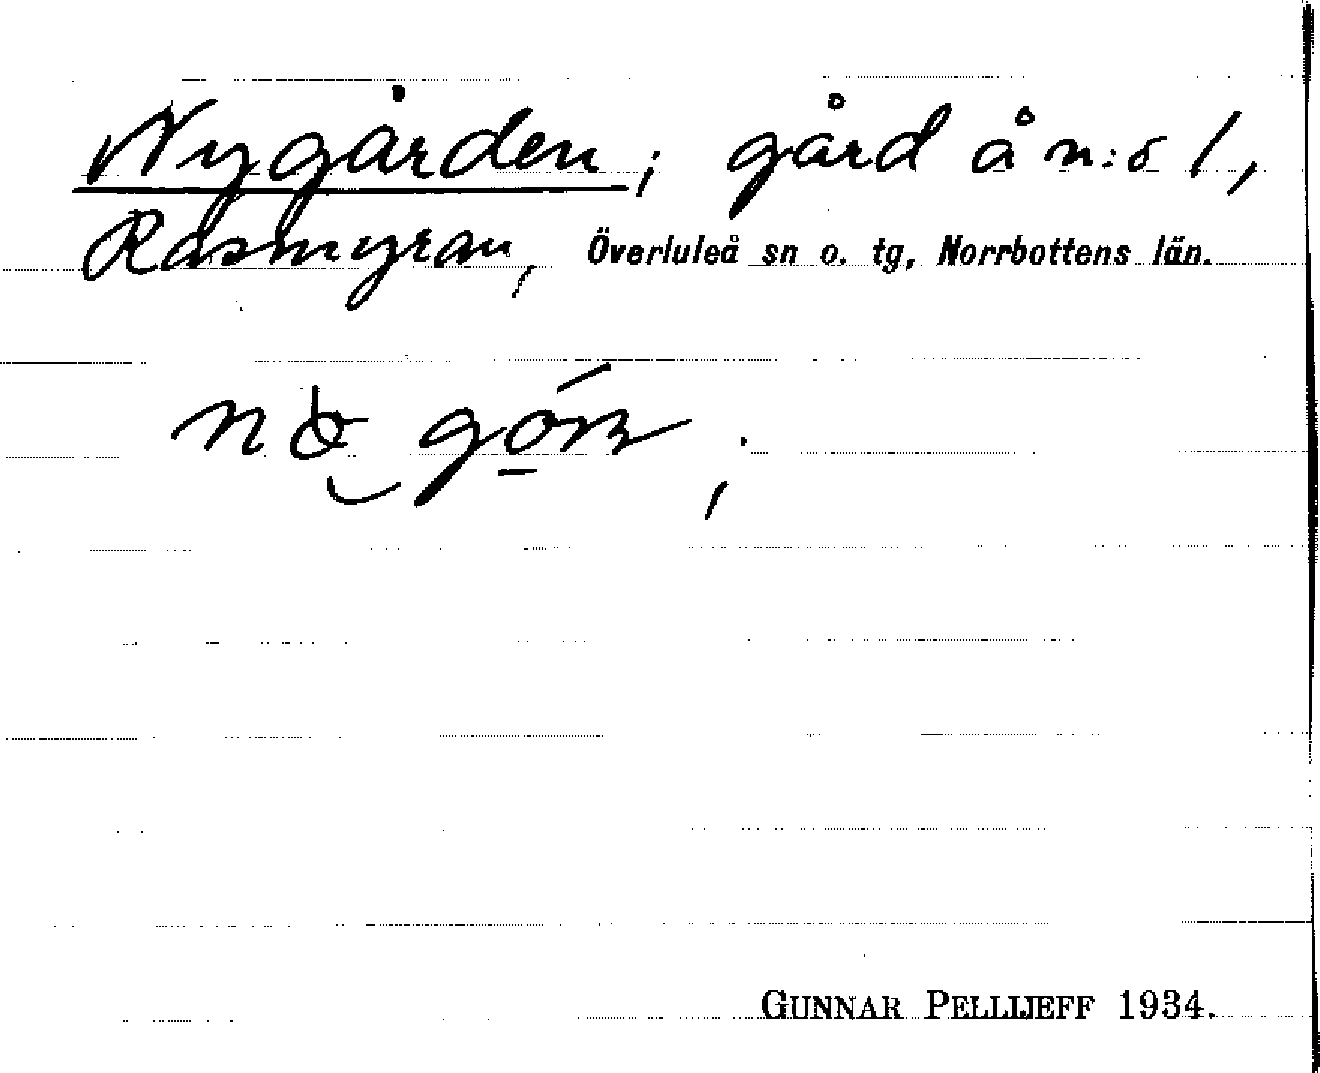 Nygården; gård å n:o 1,
Råsmyran, Överluleå sn o. tg, Norrbottens län.
GUNNAR PELLIJEFF 1934.